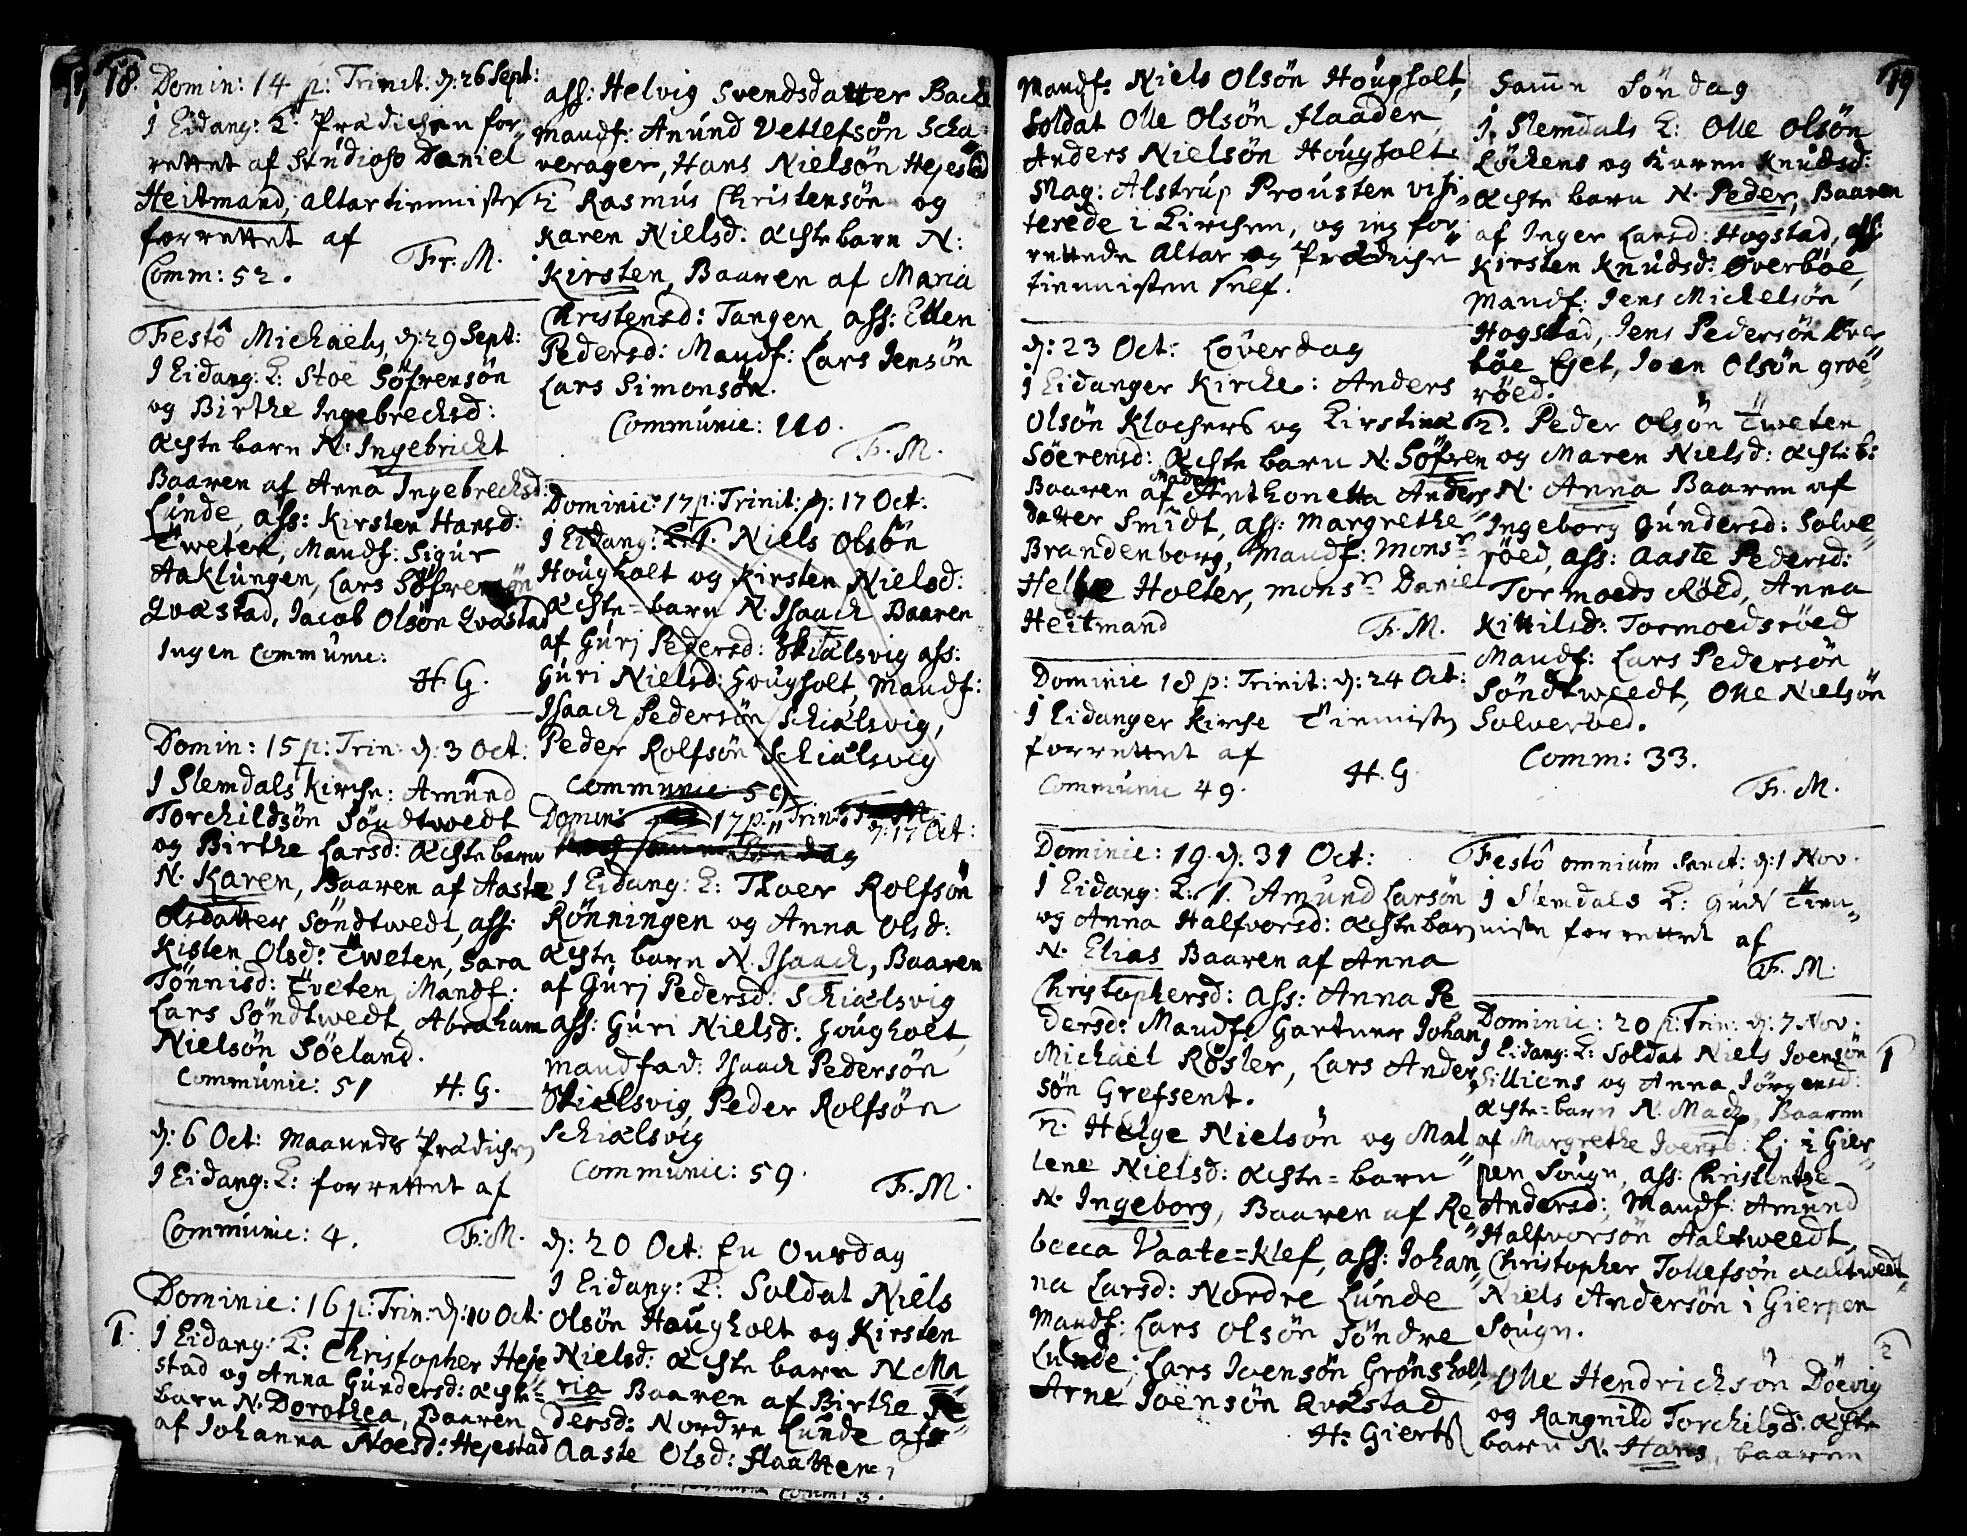 18.
Domin: 14 p: Trinit: d: 26 Sept:
J Eidang: K: Prædichen for
rettet af Studioso Daniel
Heitmand, altartiennisten
forrettet af
Fr. M.
Comm: 52.
Festô Michaëls, d: 29 Sept:
J Eidang: K: Stoe Söfrensön
og Birthe Ingebrechsd:
Æchte barn N: Ingebricht
Baaren af Anna Ingebrechsd:
Lunde, ass: Kirsten Hansd:
Tweten, Mandf: Sigur
Aaklungen, Lars Söfrensön
Qvæstad, Jacob Olsön Qvæstad
Ingen Commúnic:
H. G.
Domin: 15 p: Trin: d: 3 Oct:
J Slemdals Kirche: Amund
Torchildsön Söndtwedt
og Birthe Larsd: Æchte barn
N. Karen, Baaren af Aaste
Olsdatter Söndtwedt, ass:
Kisten Olsd: Tweten, Sara
Tönnisd: Tveten, Mandf:
Lars Söndtwedt, Abraham
Nielsön Söeland.
Communic: 51 H. G.
d: 6 Oct: Maaneds Prædichen
J Eidang: K: forrettet af
Communic: 4. F. M.
Dominic: 16 p: Trin: d: 10 Oct:
1. J Eidang: K: Christopher Heje
stad og Anna Gundersd: Æchte
barn N. Dorothea, Baaren
af Johanna Noesd: Hejestad
ass: Helvig Svendsdatter Bache
Mandf: Anund Vetlefsön Scha
verager, Hans Nielsön Hejestad
2 Rasmus Christensön og
Karen Nielsd: Æchte barn N:
Kirsten, Baaren af Maria
Christensd: Tangen, ass: Ellen
Pedersd: Mandf: Lars Jensön
Lars Simonsön.
Communic: 110.
F. M.
Dominic: 17 p: Trinit: d: 17 Oct:
J Eidang: K: 1. Niels Olsön
Hougholt og Kirsten Nielsd:
Æchte=barn N. Isaach Baaren
af Gúrj Pedersd: Skiælsvig ass:
Gúri Nielsd: Hougholt, Mandf:
Isaach Pedersön Schiælsvig,
Peder Rolfsön Schiælsvig
Communic: 59
Domin: 17 p: Trin: d: 17 Oct:
J Eidang: K: Thoer Rolfsön
Rönningen og Anna Olsd:
Æchte barn N. Isaach, Baaren
af Gúrj Pedersd: Schiælsvig
ass: Gúri Nielsd: Hougholt,
Mandfad: Isaach Pedersön
Skielsvig, Peder Rolfsön
Schiælsvig
Communic: 59.
F. M.
d: 20 Oct: En Onsdag
J Eidang: K: Soldat Niels
Olsön Hougholt og Kirsten
Nielsd: Æchte barn N Ma
ria Baaren af Birthe Pe
dersd: Nordre Lunde ass
Aaste Olsd: Flaatten,
19
Mandf: Niels Olsön Hougholt,
Soldat Olle Olsön Flaaden,
Anders Nielsön Hougholt
Mag: Alstrup Prousten visi
terede i Kirchen, og jeg for
rettede Altar og Prædiche
tiennisten self.
d: 23 Oct: Löverdag
J Eidanger Kirche: Anders
Olsön Klochers og Kirstina
Söerensd: Æchte barn N. Söfren
Baaren af Madam Anthonetta Anders
datter Smidt, ass: Margrethe
Brandenborg, Mandf: Mons:
Helle Holter, mons: Daniel
Heitmand F. M.
Dominic 18 p: Trinit: d: 24 Oct:
J Eidanger Kirche Tiennisten
forrettet af
H. G.
Communic 49.
Dominic: 19 d: 31 Oct:
J Eidang: K: 1. Amund Larsön
og Anna Halfvorsd: Æchte barn
N. Elias Baaren af Anna
Christophersd: ass: Anna Pe
dersd: Mandf: Gartner Johan
Michaël Rösler, Lars Ander
sön Grefsent.
2. Helge Nielsön og Mal
lene Nielsd: Æchte=barn
N. Ingeborg, Baaren af Re
becca Vaate=Klef, ass: Johan
na Larsd: Nordre Lunde
Mandf: Lars Olsön Söndre
Lunde, Lars Joensön Grönsholt
Arne Joensön Qvæstad
H. Gierts
Samme Söndag
J. Slemdals K: Olle Olsön
Löchens og Karen Knudsd:
Æchte barn N. Peder, Baaren
af Inger Larsd: Hogstad, ass
Kirsten Knudsd: Överböe,
Mandf: Jens Michelsön
Hogstad, Jens Pedersön Över
böe Ejet, Joen Olsön groe
röed.
2. Peder Olsön Tweten
og Maren Nielsd: Æchte b:
N. Anna Baaren af
Ingeborg Gundersd: Solve
röed, ass: Aaste Pedersd:
Tormoeds Röed, Anna
Kittilsd: Tormoedsröed
Mandf: Lars Pedersön
Söndtweedt, Olle Nielsön
Solveröed.
Comm: 33.
F. M.
Festô omnium Sanct: d: 1 Nov:
J Slemdals K: Guds Tien
niste forrettet af
F. M.
Dominic: 20 p: Trin: d: 7 Nov:
J Eidang: K: Soldat Niels Joensön 1
Silliens og Anna Jörgensd:
Æchte=barn N. Mads, Baaren
af Margrethe Joensd: Lj i Gier
pen Sougn, ass: Christentze
Andersd: Mandf: Amund
Halfvorsön Aaltweedt,
Christopher Tollefsön Aaltwedt
Niels Andersön i Gierpen
Sougn.
2
Olle Hendrichsön Döevig
og Rangnild Torchilsd: Æchte
barn N. Hans, baaren